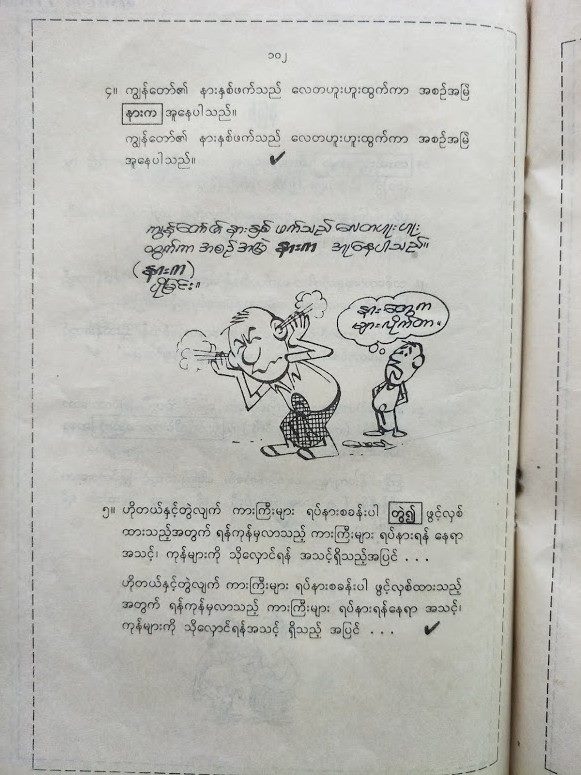 ၁၀၂
၄။ ကျွန်တော်၏ နားနှစ်ဖက်သည် လေတဟူးဟူးထွက်ကာ အစဉ်အမြဲ
နားက အူနေပါသည်။
ကျွန်တော်၏ နားနှစ်ဖက်သည် လေတဟူးဟူးထွက်ကာ အစဉ်အမြဲ
အူနေပါသည်။
ကျွန်တော်၏ နားနှစ်ဖက်သည် လေတဟူးဟူး
ထွက်ကာ အစဉ်အမြဲ နားက အူနေပါသည်။
(နားက)
ပိုခြင်း။
နားတွေက
များလိုက်တာ။
၅။ ဟိုတယ်နှင့်တွဲလျက် ကားကြီးများ ရပ်နားစခန်းပါ တွဲ၍ ဖွင့်လှစ်
ထားသည့်အတွက် ရန်ကုန်မှလာသည့် ကားကြီးများ ရပ်နားရန် နေရာ
အသင့်၊ ကုန်များကို သိုလှောင်ရန် အသင့်ရှိသည့်အပြင် . . .
ဟိုတယ်နှင့်တွဲလျက် ကားကြီးများ ရပ်နားစခန်းပါ ဖွင့်လှစ်ထားသည့်
အတွက် ရန်ကုန်မှလာသည့် ကားကြီးများ ရပ်နားရန်နေရာ အသင့်၊
ကုန်များကို သိုလှောင်ရန်အသင့် ရှိသည့် အပြင် . . .